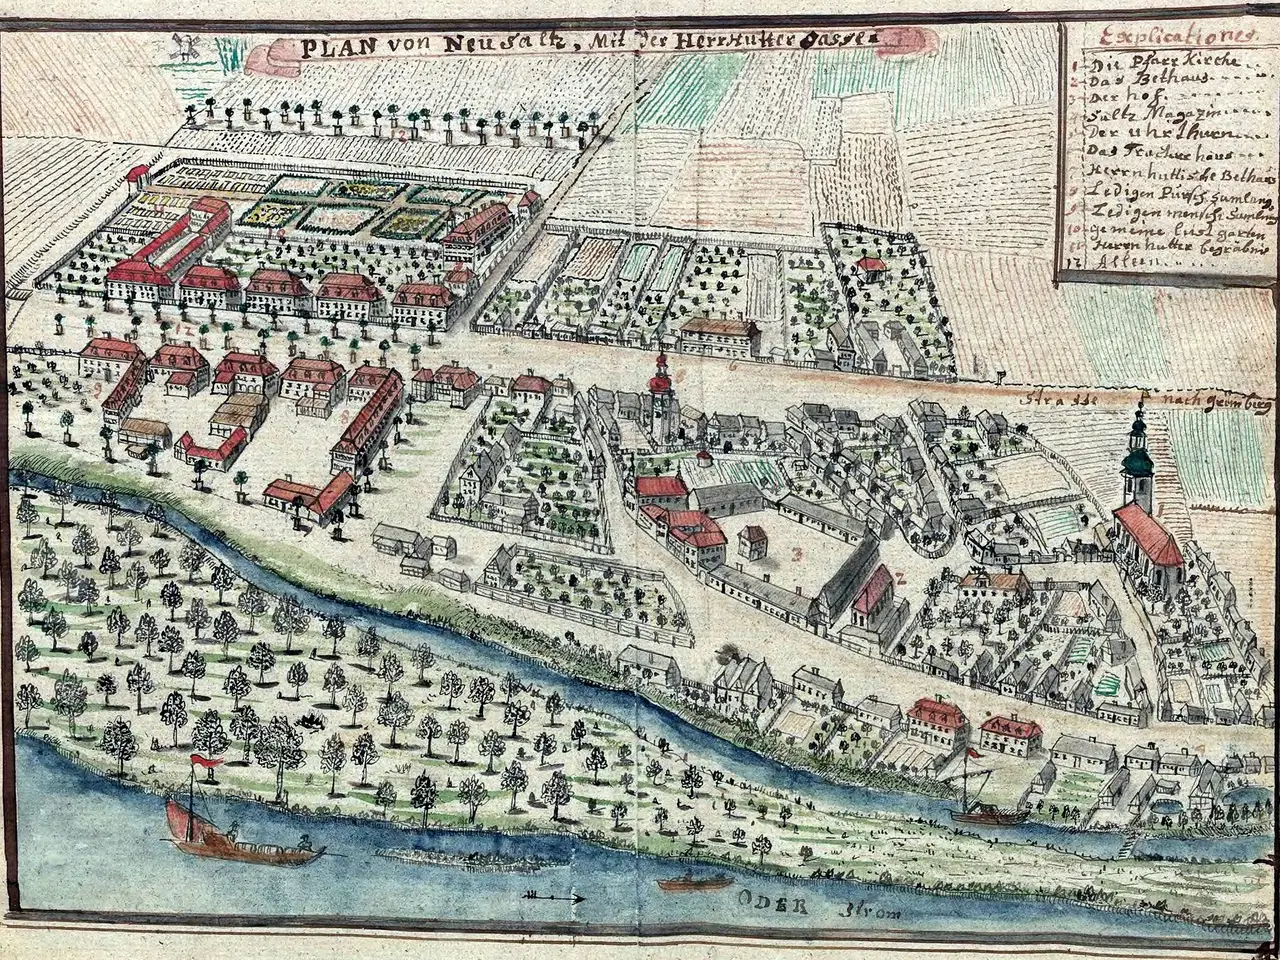 PLAN von Neu Saltz, Mit der Herrnhutter Gasse
Explicationes
1 Die Pfarr Kirche
2 Das Bethaus
3 Der hof
Saltz Magazin
Der Uhr thurn
Das
Herrnhuttische Bethaus
Ledigen Pursch Samlung
Ledigen mensch Samlung
10 gemeine lust garten
11 Herrnhutter begräbnis
12 Alleen
12
10
12
9
8
5
6
Strasse nach grünberg
3
2
ODER Strom